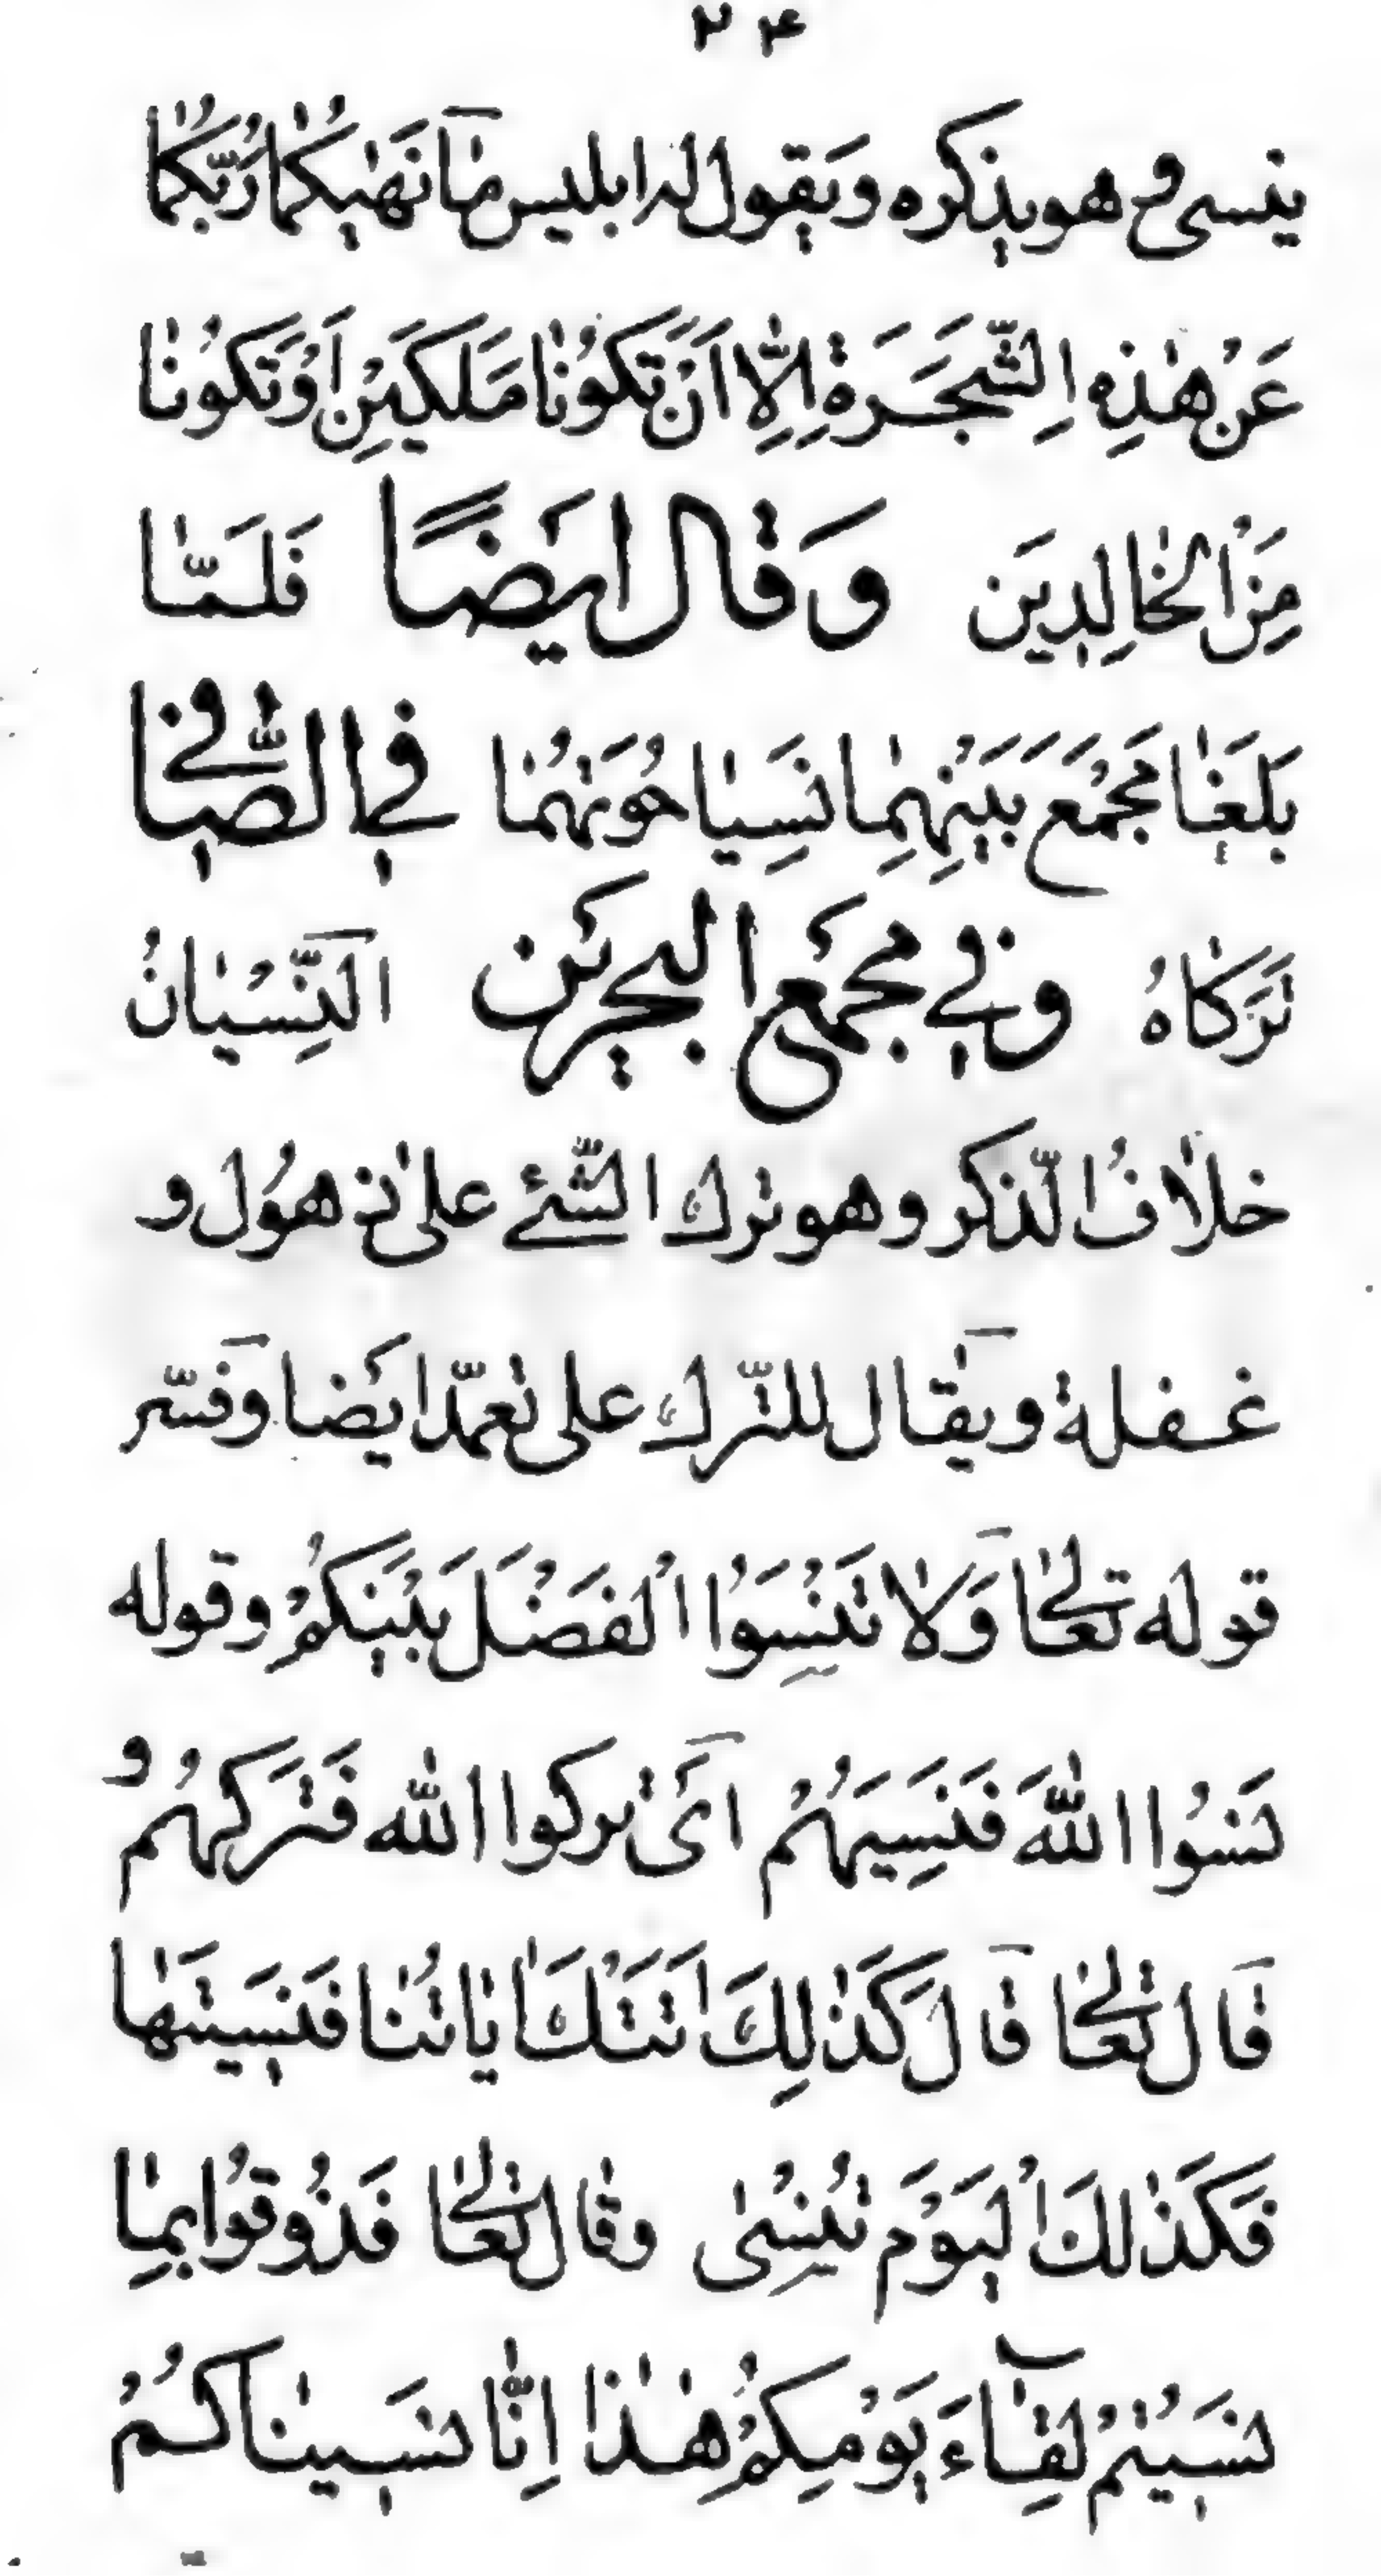 ۲۴
ینسی وح هو یذکره ویقول له ابلیس مٰا نَهٰیکُمٰا رَبُّکُمٰا
عَنْ هٰذِهِ الشَّجَرَةِ اِلّٰا اَنْ تَکُونٰا مَلَکَیْنِ اَوْ تَکُونٰا
مِنَ الْخٰالِدِینَ وَقٰال ایَضًا فَلَمّٰا
بَلَغٰا مَجْمَعَ بَیْنِهِمٰا نَسِیٰا حُوتَهُمٰا فی الصّٰافی
تَرَکٰاهُ وفی مجمَع البحرَین اَلنِّسْیٰانُ
خلٰافُ الذّکر وهو ترك الشّئ علی ذهُول و
غفلة ویقٰال للتّرك علی تعمّد ایَضا وَفسّر
قوله تعٰالی وَلٰا تَنْسَوُا الْفَضْلَ بَیْنَکُمْ وقوله
نَسُوا اللّٰهَ فَنَسِیَهُمْ اَیْ ترکوا اللّٰه فَتَرکَهُم و
قَال تعٰالی قَالَ کَذٰلِكَ اَتَتْكَ اٰیٰاتُنٰا فَنَسیتَهٰا
فَکَذٰلكَ الْیَوْمَ تُنْسٰی وقٰال تعٰالی فَذُوقُوا بِمٰا
نَسَیتُمْ لِقٰآءَ یَوْمِکُمْ هٰذٰا اِنّٰا نَسَینٰاکُمْ